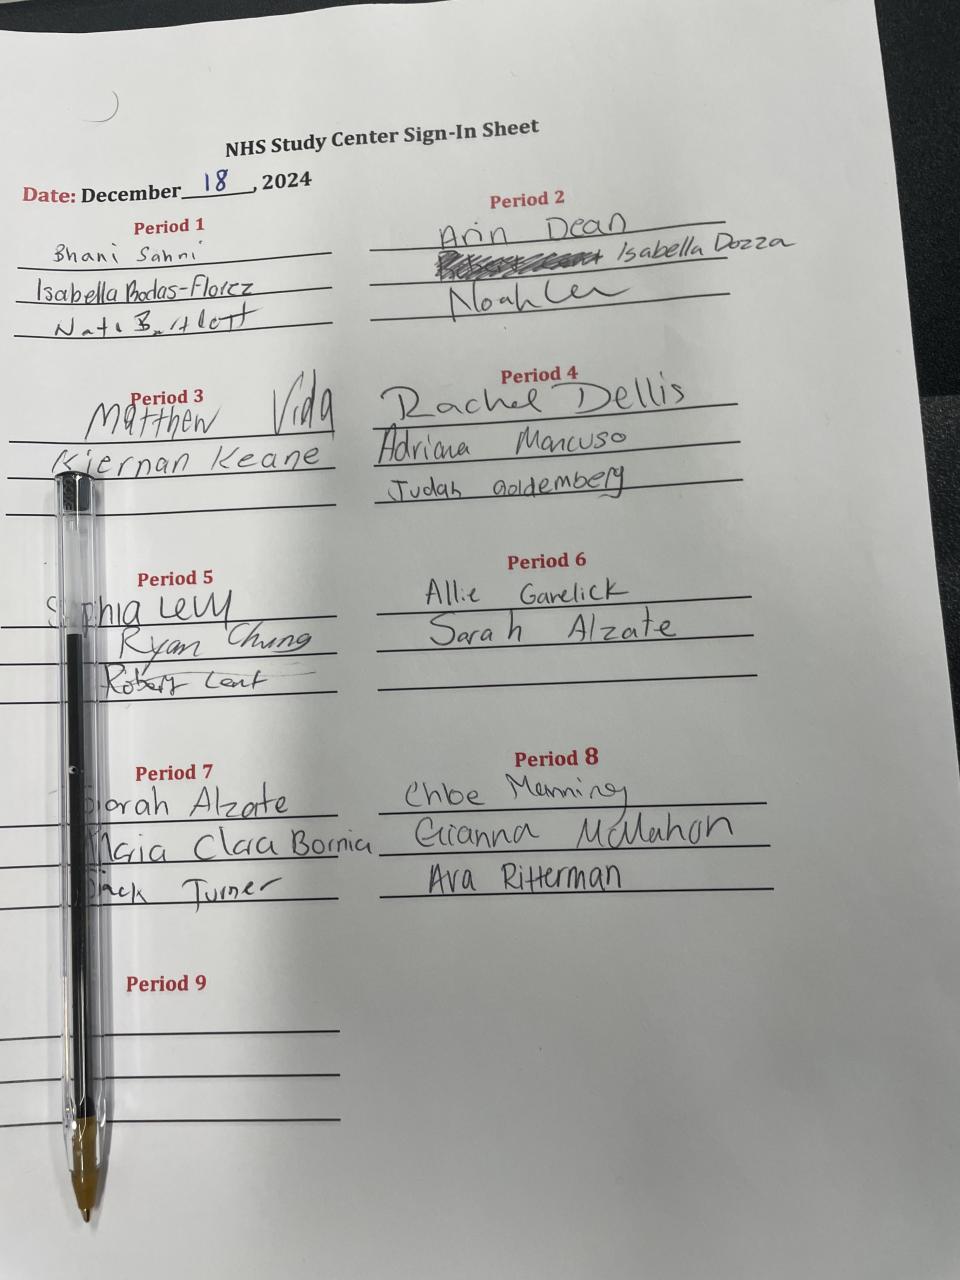 NHS Study Center Sign-In Sheet
Date: December 18, 2024
Period 1
Bhani Sahni
Isabella Bodas-Florez
Nate Bartlett
Period 2
Arin Dean
Isabella Dozza
Noah
Period 3
Matthew Vida
Kiernan Keane
Period 4
Rachel Dellis
Adriana Mancuso
Judah Goldemberg
Period 5
Sophia Levy
Ryan Chung
Robert Lent
Period 6
Allie Garelick
Sarah Alzate
Period 7
Sarah Alzate
Maria Clara Bornia
Jack Turner
Period 8
Chloe Manning
Gianna McMahon
Ava Ritterman
Period 9